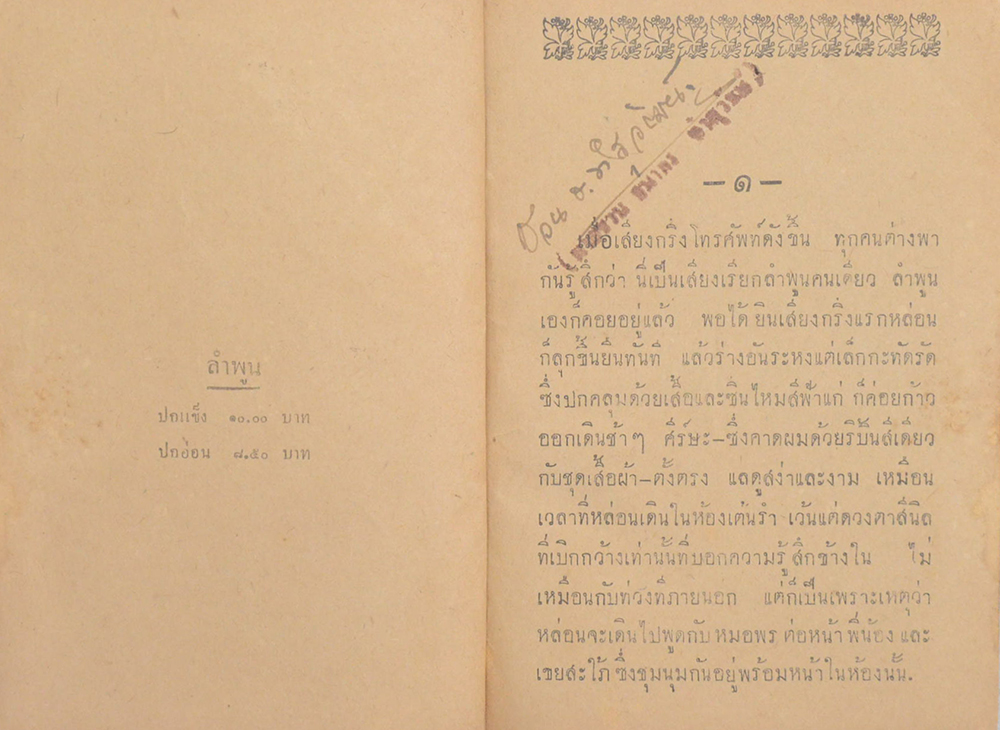 ลำพูน
ปกแข็ง ๑๐.๐๐ บาท
ปกอ่อน ๘.๕๐ บาท
— ๑ —
เมื่อเสียงกริ่งโทรศัพท์ดังขึ้น ทุกคนต่างพา
กันรู้สึกว่า นี่เป็นเสียงเรียกลำพูนคนเดียว ลำพูน
เองก็คอยอยู่แล้ว พอได้ยินเสียงกริ่งแรกหล่อน
ก็ลุกขึ้นยืนทันที แล้วร่างอันระหงแต่เล็กกะทัดรัด
ซึ่งปกคลุมด้วยเสื้อและซิ่นไหมสีฟ้าแก่ ก็ค่อยก้าว
ออกเดินช้า ๆ ศีร์ษะ-ซึ่งคาดผมด้วยริบบิ้นสีเดียว
กับชุดเสื้อผ้า-ตั้งตรง แลดูสง่าและงาม เหมือน
เวลาที่หล่อนเดินในห้องเต้นรำ เว้นแต่ดวงตาสีนิล
ที่เบิกกว้างเท่านั้นที่บอกความรู้สึกข้างใน ไม่
เหมือนกับท่วงทีภายนอก แต่ก็เป็นเพราะเหตุว่า
หล่อนจะเดินไปพูดกับหมอพร ต่อหน้าพี่น้อง และ
เขยสะใภ้ ซึ่งชุมนุมกันอยู่พร้อมหน้าในห้องนั้น.